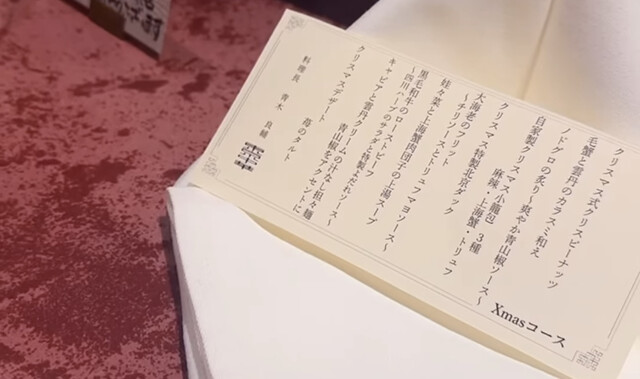 Xmasコース
クリスマス式クリスピーナッツ
毛蟹と雲丹のカラスミ和え
ノドグロの炙り〜爽やか青山椒ソース〜
自家製クリスマス小籠包 3種
麻辣・上海蟹・トリュフ
クリスマス特製北京ダック
大海老のフリット
〜チリソースとトリュフマヨソース〜
娃々菜と上海蟹肉団子の上湯スープ
黒毛和牛のローストビーフ
〜四川ハーブのサラダと特製よだれソース〜
キャビアと雲丹クリームの汁なし担々麺
青山椒をアクセントに
クリスマスデザート
苺のタルト
料理長 青木 良輔